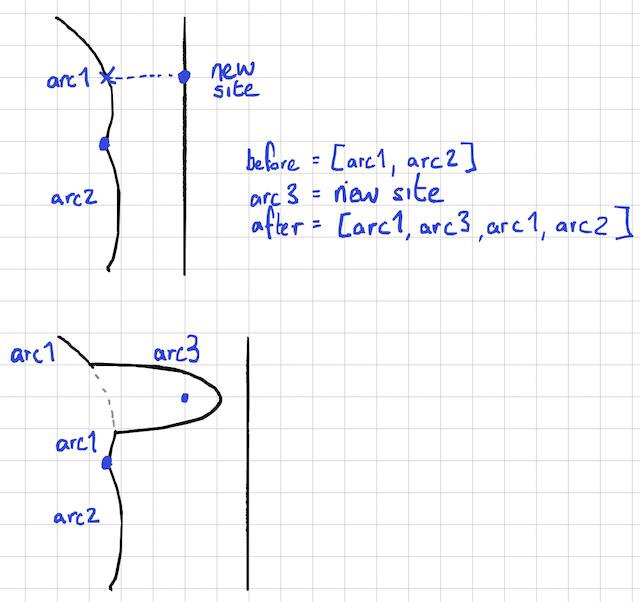 arc1
new
site
arc2
before = [arc1, arc2]
arc3 = new site
after = [arc1, arc3, arc1, arc2]
arc1
arc3
arc1
arc2